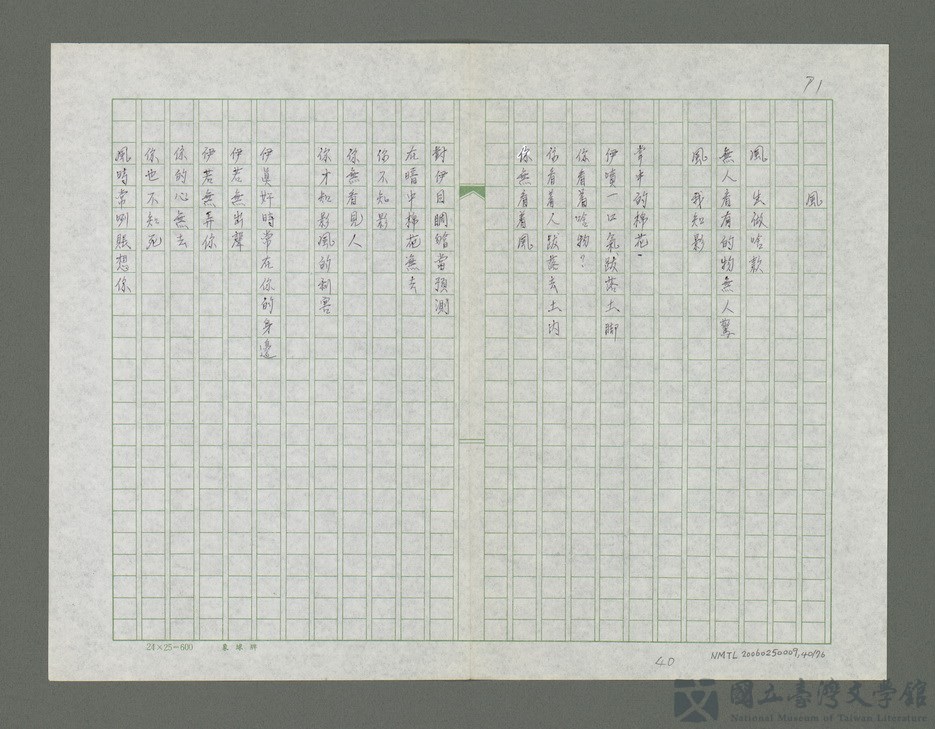 71
風
風 生做啥款
無人看有的物無人驚
風 我知影
常來的棉花、
伊噴一口氣跋落土腳
你看着啥物？
你看着人跋落去土內
你無看着風
對伊目睭給當預測
在暗中棉花無去
你不知影
你無看見人
你才知影風的利害
伊眞好時常在你的身邊
伊若無出聲
伊若無弄你
你的心無去
你也不知死
風時常咧賬想你
24×25=600
40
NMTL 20060250009,40/76
國立臺灣文學館
National Museum of Taiwan Literature